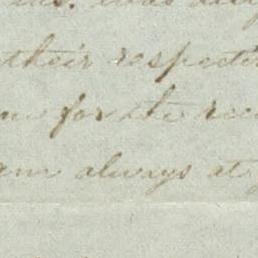 was
their respecte
for the rec
am always at